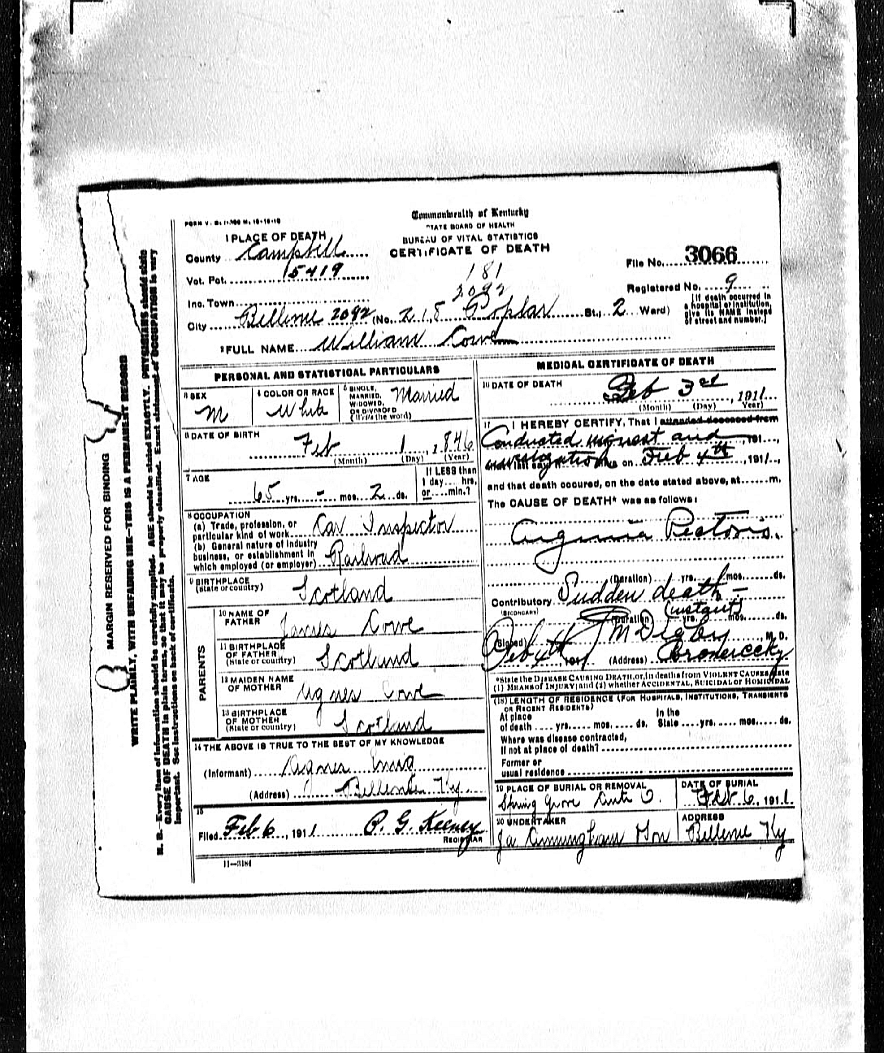 FORM V. S.
Commonwealth of Kentucky
STATE BOARD OF HEALTH
BUREAU OF VITAL STATISTICS
CERTIFICATE OF DEATH
1 PLACE OF DEATH
County Campbell
Vot. Pct. 15419
181
2092
File No. 3066
Registered No. 9
Inc. Town
City Bellevue 2092 (No. 215 Poplar St., 2 Ward)
[If death occurred in a hospital or institution, give its NAME instead of street and number.]
2 FULL NAME William Cowe
PERSONAL AND STATISTICAL PARTICULARS
3 SEX M
4 COLOR OR RACE White
5 SINGLE, MARRIED, WIDOWED, OR DIVORCED (Write the word) Married
6 DATE OF BIRTH Feb 1, 1846
(Month) (Day) (Year)
7 AGE 65 yrs. - mos. 2 ds.
If LESS than 1 day....hrs. or....min.?
8 OCCUPATION
(a) Trade, profession, or particular kind of work Car Inspector
(b) General nature of industry business, or establishment in which employed (or employer) Railroad
9 BIRTHPLACE (State or country) Scotland
PARENTS
10 NAME OF FATHER James Cowe
11 BIRTHPLACE OF FATHER (State or country) Scotland
12 MAIDEN NAME OF MOTHER Agnes Cowe
13 BIRTHPLACE OF MOTHER (State or country) Scotland
14 THE ABOVE IS TRUE TO THE BEST OF MY KNOWLEDGE
(Informant) Agnes
(Address) Bellevue Ky.
15
Filed Feb 6, 1911 P. G. Keeney
REGISTRAR
11-3184
MEDICAL CERTIFICATE OF DEATH
16 DATE OF DEATH Feb 3rd, 1911
(Month) (Day) (Year)
17 I HEREBY CERTIFY, That I attended deceased from
Conducted inquest and 191
investigation on Feb 4th, 1911,
and that death occured, on the date stated above, at ....m.
The CAUSE OF DEATH* was as follows:
Angina Pectoris.
(Duration) yrs. mos. ds.
Contributory Sudden death -
(SECONDARY)
(instant)
(Duration) yrs. mos. ds.
(Signed) Digby M. D.
Feb 4th 1911 (Address)
*State the DISEASE CAUSING DEATH, or, in deaths from VIOLENT CAUSES, state (1) MEANS OF INJURY; and (2) whether ACCIDENTAL, SUICIDAL or HOMICIDAL
(18) LENGTH OF RESIDENCE (FOR HOSPITALS, INSTITUTIONS, TRANSIENTS OR RECENT RESIDENTS)
At place of death yrs. mos. ds. In the State yrs. mos. ds.
Where was disease contracted, If not at place of death?
Former or usual residence
19 PLACE OF BURIAL OR REMOVAL
Spring Grove Cinti O.
DATE OF BURIAL
Feb 6, 1911
20 UNDERTAKER
Cunningham Son
ADDRESS
Bellevue Ky
MARGIN RESERVED FOR BINDING
WRITE PLAINLY, WITH UNFADING INK—THIS IS A PERMANENT RECORD
N. B.—Every item of information should be carefully supplied. AGE should be stated EXACTLY. PHYSICIANS should state
CAUSE OF DEATH in plain terms, so that it may be properly classified. Exact statement of OCCUPATION is very
important. See instructions on back of certificate.